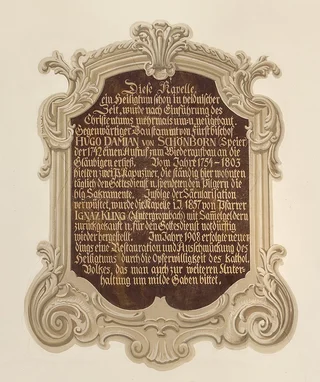 Diese Kapelle,
ein Heiligtum schon in heidnischer
Zeit, wurde nach Einführung des
Christentums mehrmals umu. neugebaut.
Gegenwärtiger Bau stammt von Fürstbischof
HUGO DAMIAN von SCHÖNBORN Speier
der 1742 einen Aufruf zum Wiederaufbau an die
Gläubigen erließ. Vom Jahre 1754-1803
hielten zwei P. Kapuziner, die ständig hier wohnten
täglich den Gottesdienst u. spendeten den Pilgern die
hlg Sakramente. Infolge der Säcularisation
verwüstet, wurde die Kapelle i. J. 1857 von Pfarrer
IGNAZ KLING (Untergrombach) mit Sammelgeldern
zurückgekauft u. für den Gottesdienst notdürftig
wieder hergestellt. Im Jahre 1908 erfolgte neuer-
dings eine Restauration und Ausschmückung des
Heiligtums durch die Opferwilligkeit des kathol.
Volkes, das man auch zur weiteren Unter-
haltung um milde Gaben bittet.